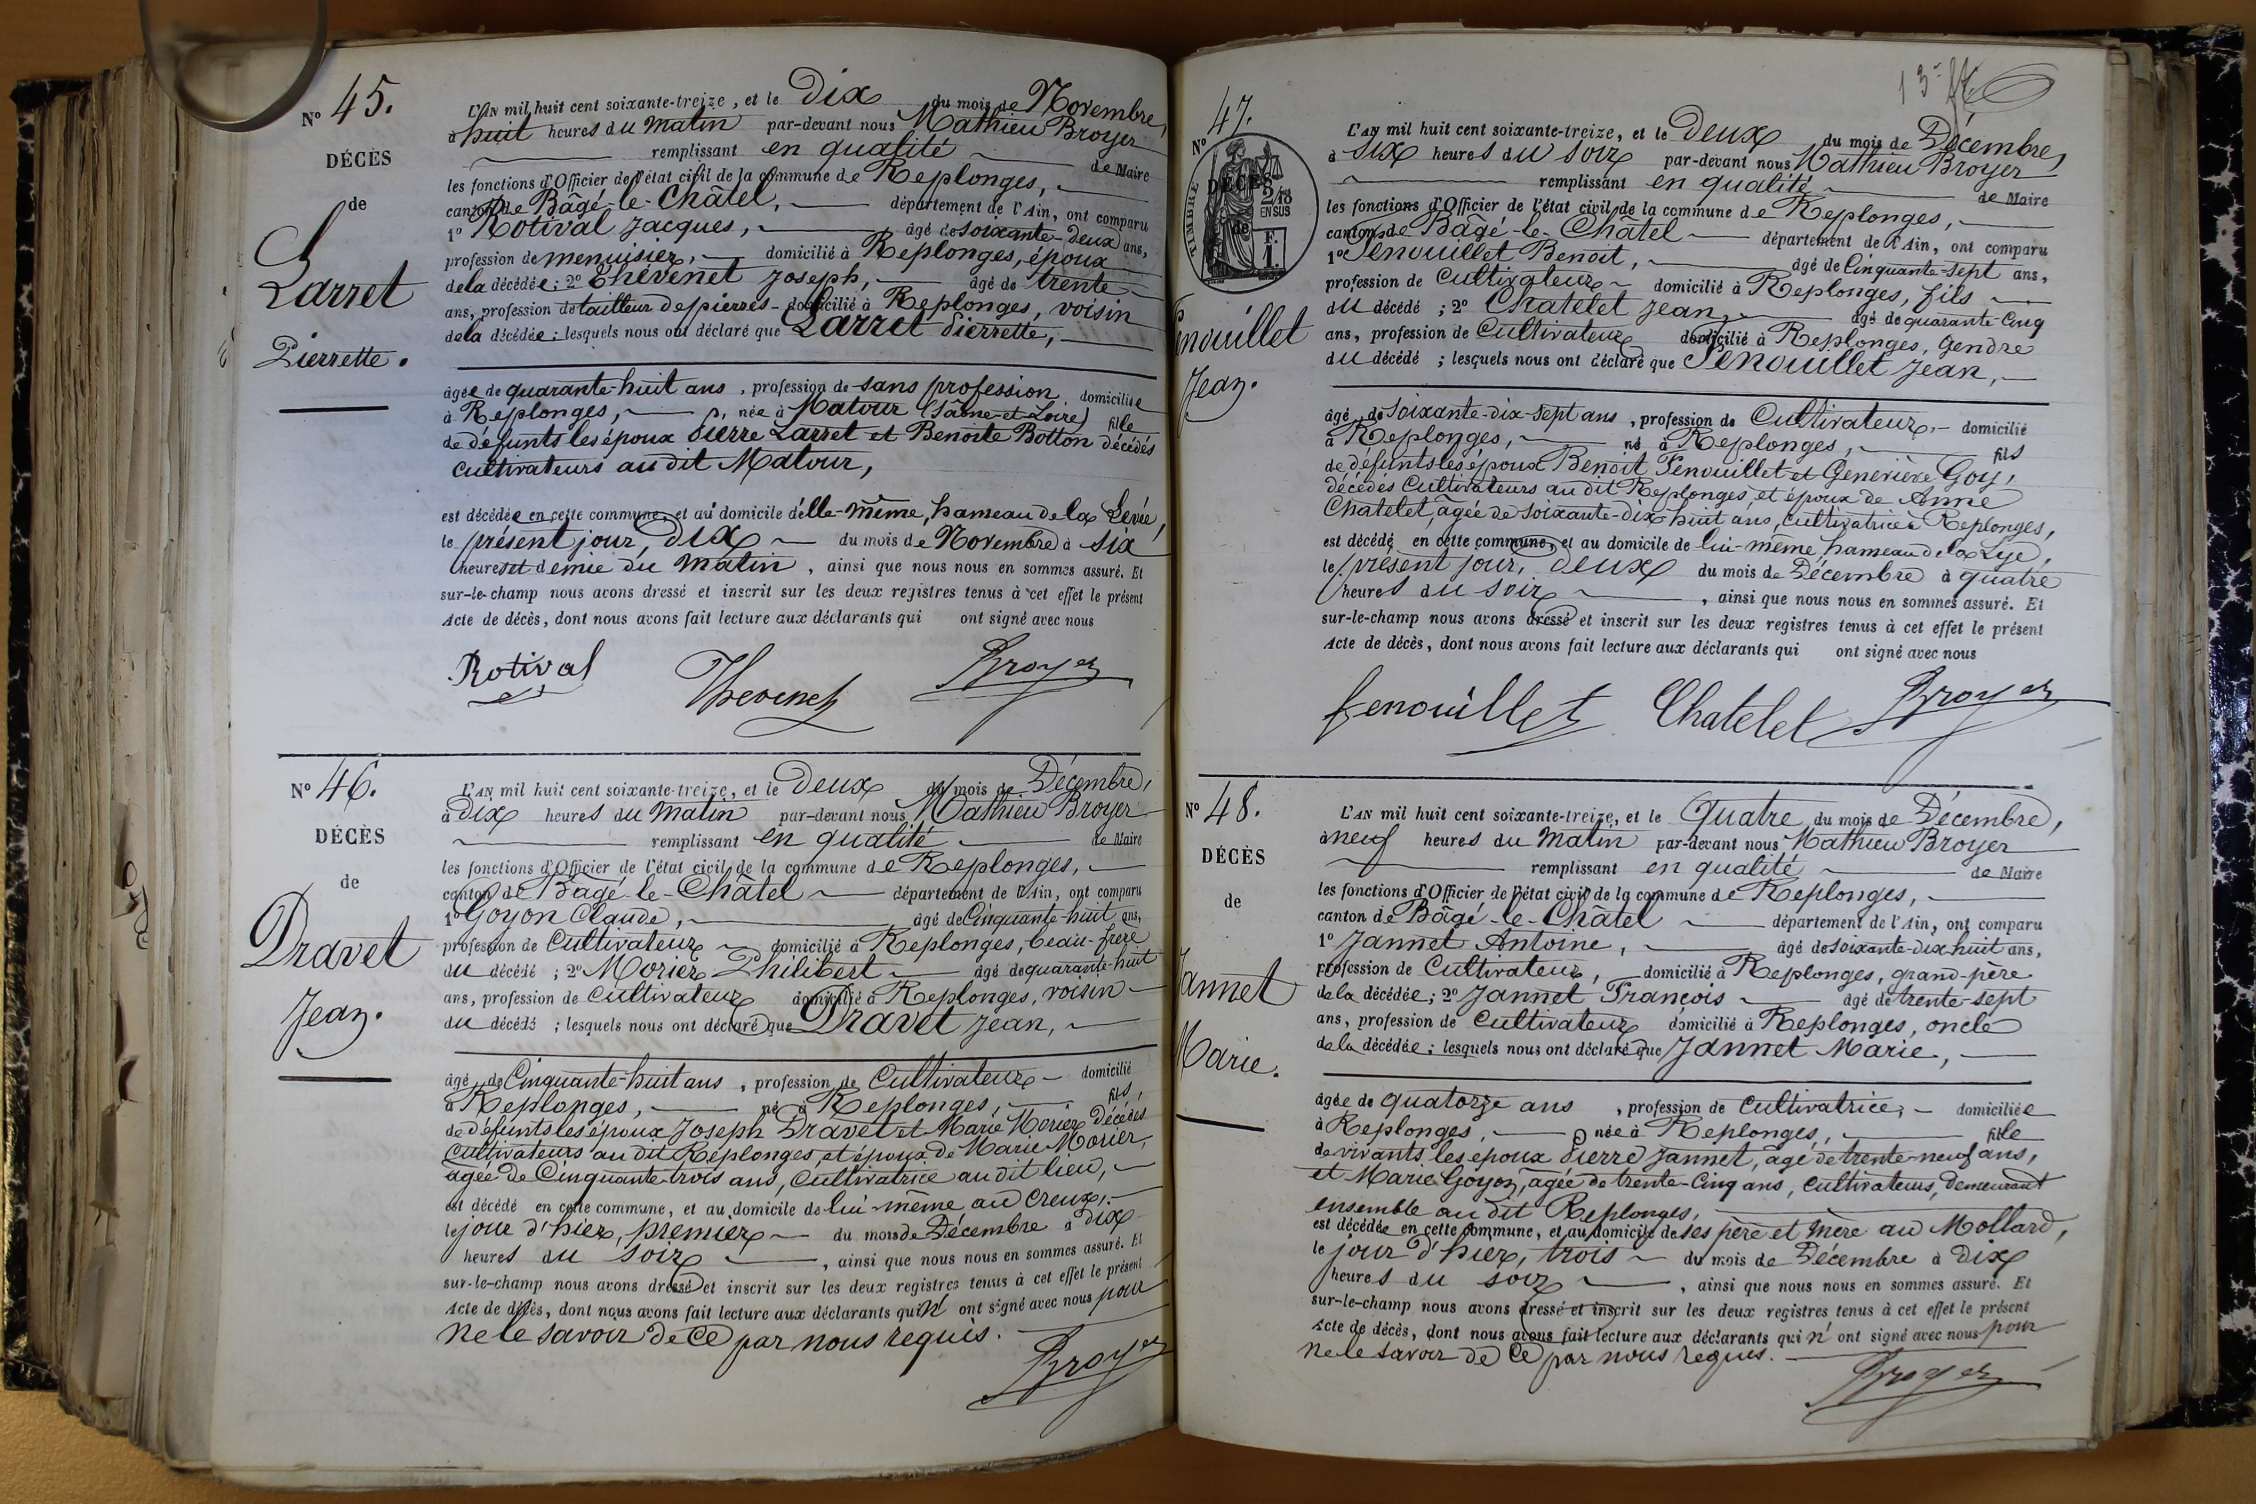 N° 45.
DÉCÈS
de
Larret
Pierrette.
L'AN mil huit cent soixante-treize, et le Dix du mois de Novembre,
à huit heures du matin par-devant nous Mathieu Broyer
remplissant en qualité de Maire
les fonctions d'Officier de l'état civil de la commune de Replonges,
canton de Bâgé-le-Châtel, département de l'Ain, ont comparu
1° Rotival Jacques, âgé de soixante-deux ans,
profession de menuisier, domicilié à Replonges, époux
de la décédée; 2° Thévenet Joseph, âgé de trente
ans, profession de tailleur de pierres - domicilié à Replonges, voisin
de la décédée; lesquels nous ont déclaré que Larret Pierrette,
âgée de quarante-huit ans, profession de sans profession domiciliée
à Replonges, née à Matour (Saône-et-Loire) fille
de défunts les époux Pierre Larret et Benoite Botton décédés
cultivateurs au dit Matour,
est décédée en cette commune, et au domicile d'elle-même, hameau de la Levée,
le présent jour, dix du mois de Novembre à six
heures et demie du matin, ainsi que nous nous en sommes assuré. Et
sur-le-champ nous avons dressé et inscrit sur les deux registres tenus à cet effet le présent
Acte de décès, dont nous avons fait lecture aux déclarants qui ont signé avec nous
Rotival Thevenet Broyer
N° 46.
DÉCÈS
de
Dravet
Jean.
L'AN mil huit cent soixante-treize, et le Deux du mois de Décembre,
à Dix heures du matin par-devant nous Mathieu Broyer
remplissant en qualité de Maire
les fonctions d'Officier de l'état civil de la commune de Replonges,
canton de Bâgé-le-Châtel département de l'Ain, ont comparu
1° Goyon Claude, âgé de Cinquante-huit ans,
profession de Cultivateur domicilié à Replonges, beau-frère
du décédé; 2° Morier Philibert âgé de quarante-huit
ans, profession de Cultivateur domicilié à Replonges, voisin
du décédé; lesquels nous ont déclaré que Dravet Jean,
âgé de Cinquante-huit ans, profession de Cultivateur domicilié
à Replonges, né à Replonges, fils,
de défunts les époux Joseph Dravet et Marie Morier Décédés
Cultivateurs au dit Replonges, et époux de Marie Morier,
agée de Cinquante-trois ans, Cultivatrice au dit lieu,
est décédé en cette commune, et au domicile de lui-même au Creux,
le jour d'hier, premier du mois de Décembre à Dix
heures du soir, ainsi que nous nous en sommes assuré. Et
sur-le-champ nous avons dressé et inscrit sur les deux registres tenus à cet effet le présent
Acte de décès, dont nous avons fait lecture aux déclarants qui n'ont signé avec nous pour
ne le savoir de ce par nous requis.
Broyer
N° 47.
TIMBRE
2/10
EN SUS
DÉCÈS
de
Fenouillet
Jean.
L'AN mil huit cent soixante-treize, et le Deux du mois de Décembre,
à six heures du soir par-devant nous Mathieu Broyer
remplissant en qualité de Maire
les fonctions d'Officier de l'état civil de la commune de Replonges,
canton de Bâgé-le-Châtel département de l'Ain, ont comparu
1° Fenouillet Benoit, âgé de Cinquante-sept ans,
profession de Cultivateur domicilié à Replonges, fils
du décédé; 2° Chatelet Jean, âgé de quarante-Cinq
ans, profession de Cultivateur domicilié à Replonges, Gendre
du décédé; lesquels nous ont déclaré que Fenouillet Jean,
âgé de soixante-dix-sept ans, profession de Cultivateur, domicilié
à Replonges, né à Replonges, fils
de défunts les époux Benoit Fenouillet et Geneviève Goy,
décédés Cultivateurs au dit Replonges, et époux de Anne
Chatelet, agée de soixante-dix-huit ans, Cultivatrice à Replonges,
est décédé en cette commune, et au domicile de lui-même hameau de la Lye,
le présent jour, deux du mois de Décembre à quatre
heures du soir, ainsi que nous nous en sommes assuré. Et
sur-le-champ nous avons dressé et inscrit sur les deux registres tenus à cet effet le présent
Acte de décès, dont nous avons fait lecture aux déclarants qui ont signé avec nous
fenouillet Chatelet Broyer
N° 48.
DÉCÈS
de
Jannet
Marie.
L'AN mil huit cent soixante-treize, et le Quatre du mois de Décembre,
à neuf heures du matin par-devant nous Mathieu Broyer
remplissant en qualité de Maire
les fonctions d'Officier de l'état civil de la commune de Replonges,
canton de Bâgé-le-Châtel département de l'Ain, ont comparu
1° Jannet Antoine, âgé de soixante-dix huit ans,
profession de Cultivateur, domicilié à Replonges, grand-père
de la décédée; 2° Jannet François âgé de trente-sept
ans, profession de Cultivateur domicilié à Replonges, oncle
de la décédée; lesquels nous ont déclaré que Jannet Marie,
âgée de quatorze ans, profession de Cultivatrice, domiciliée
à Replonges, née à Replonges, fille
de vivants les époux Pierre Jannet, agé de trente-neuf ans,
et Marie Goyon, agée de trente-Cinq ans, cultivateurs, demeurant
ensemble au dit Replonges,
est décédée en cette commune, et au domicile de ses père et mère au Mollard,
le jour d'hier, trois du mois de Décembre à Dix
heures du soir, ainsi que nous nous en sommes assuré. Et
sur-le-champ nous avons dressé et inscrit sur les deux registres tenus à cet effet le présent
Acte de décès, dont nous avons fait lecture aux déclarants qui n'ont signé avec nous pour
ne le savoir de ce par nous requis.
Broyer